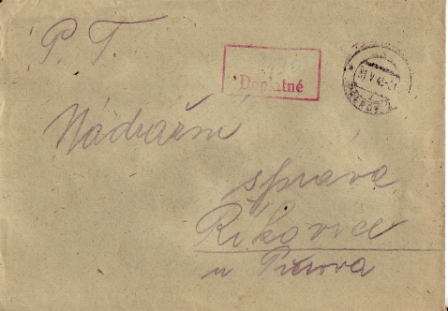 P. T.
Doplatné
Nádražní
správa
Říkovice
u Přerova